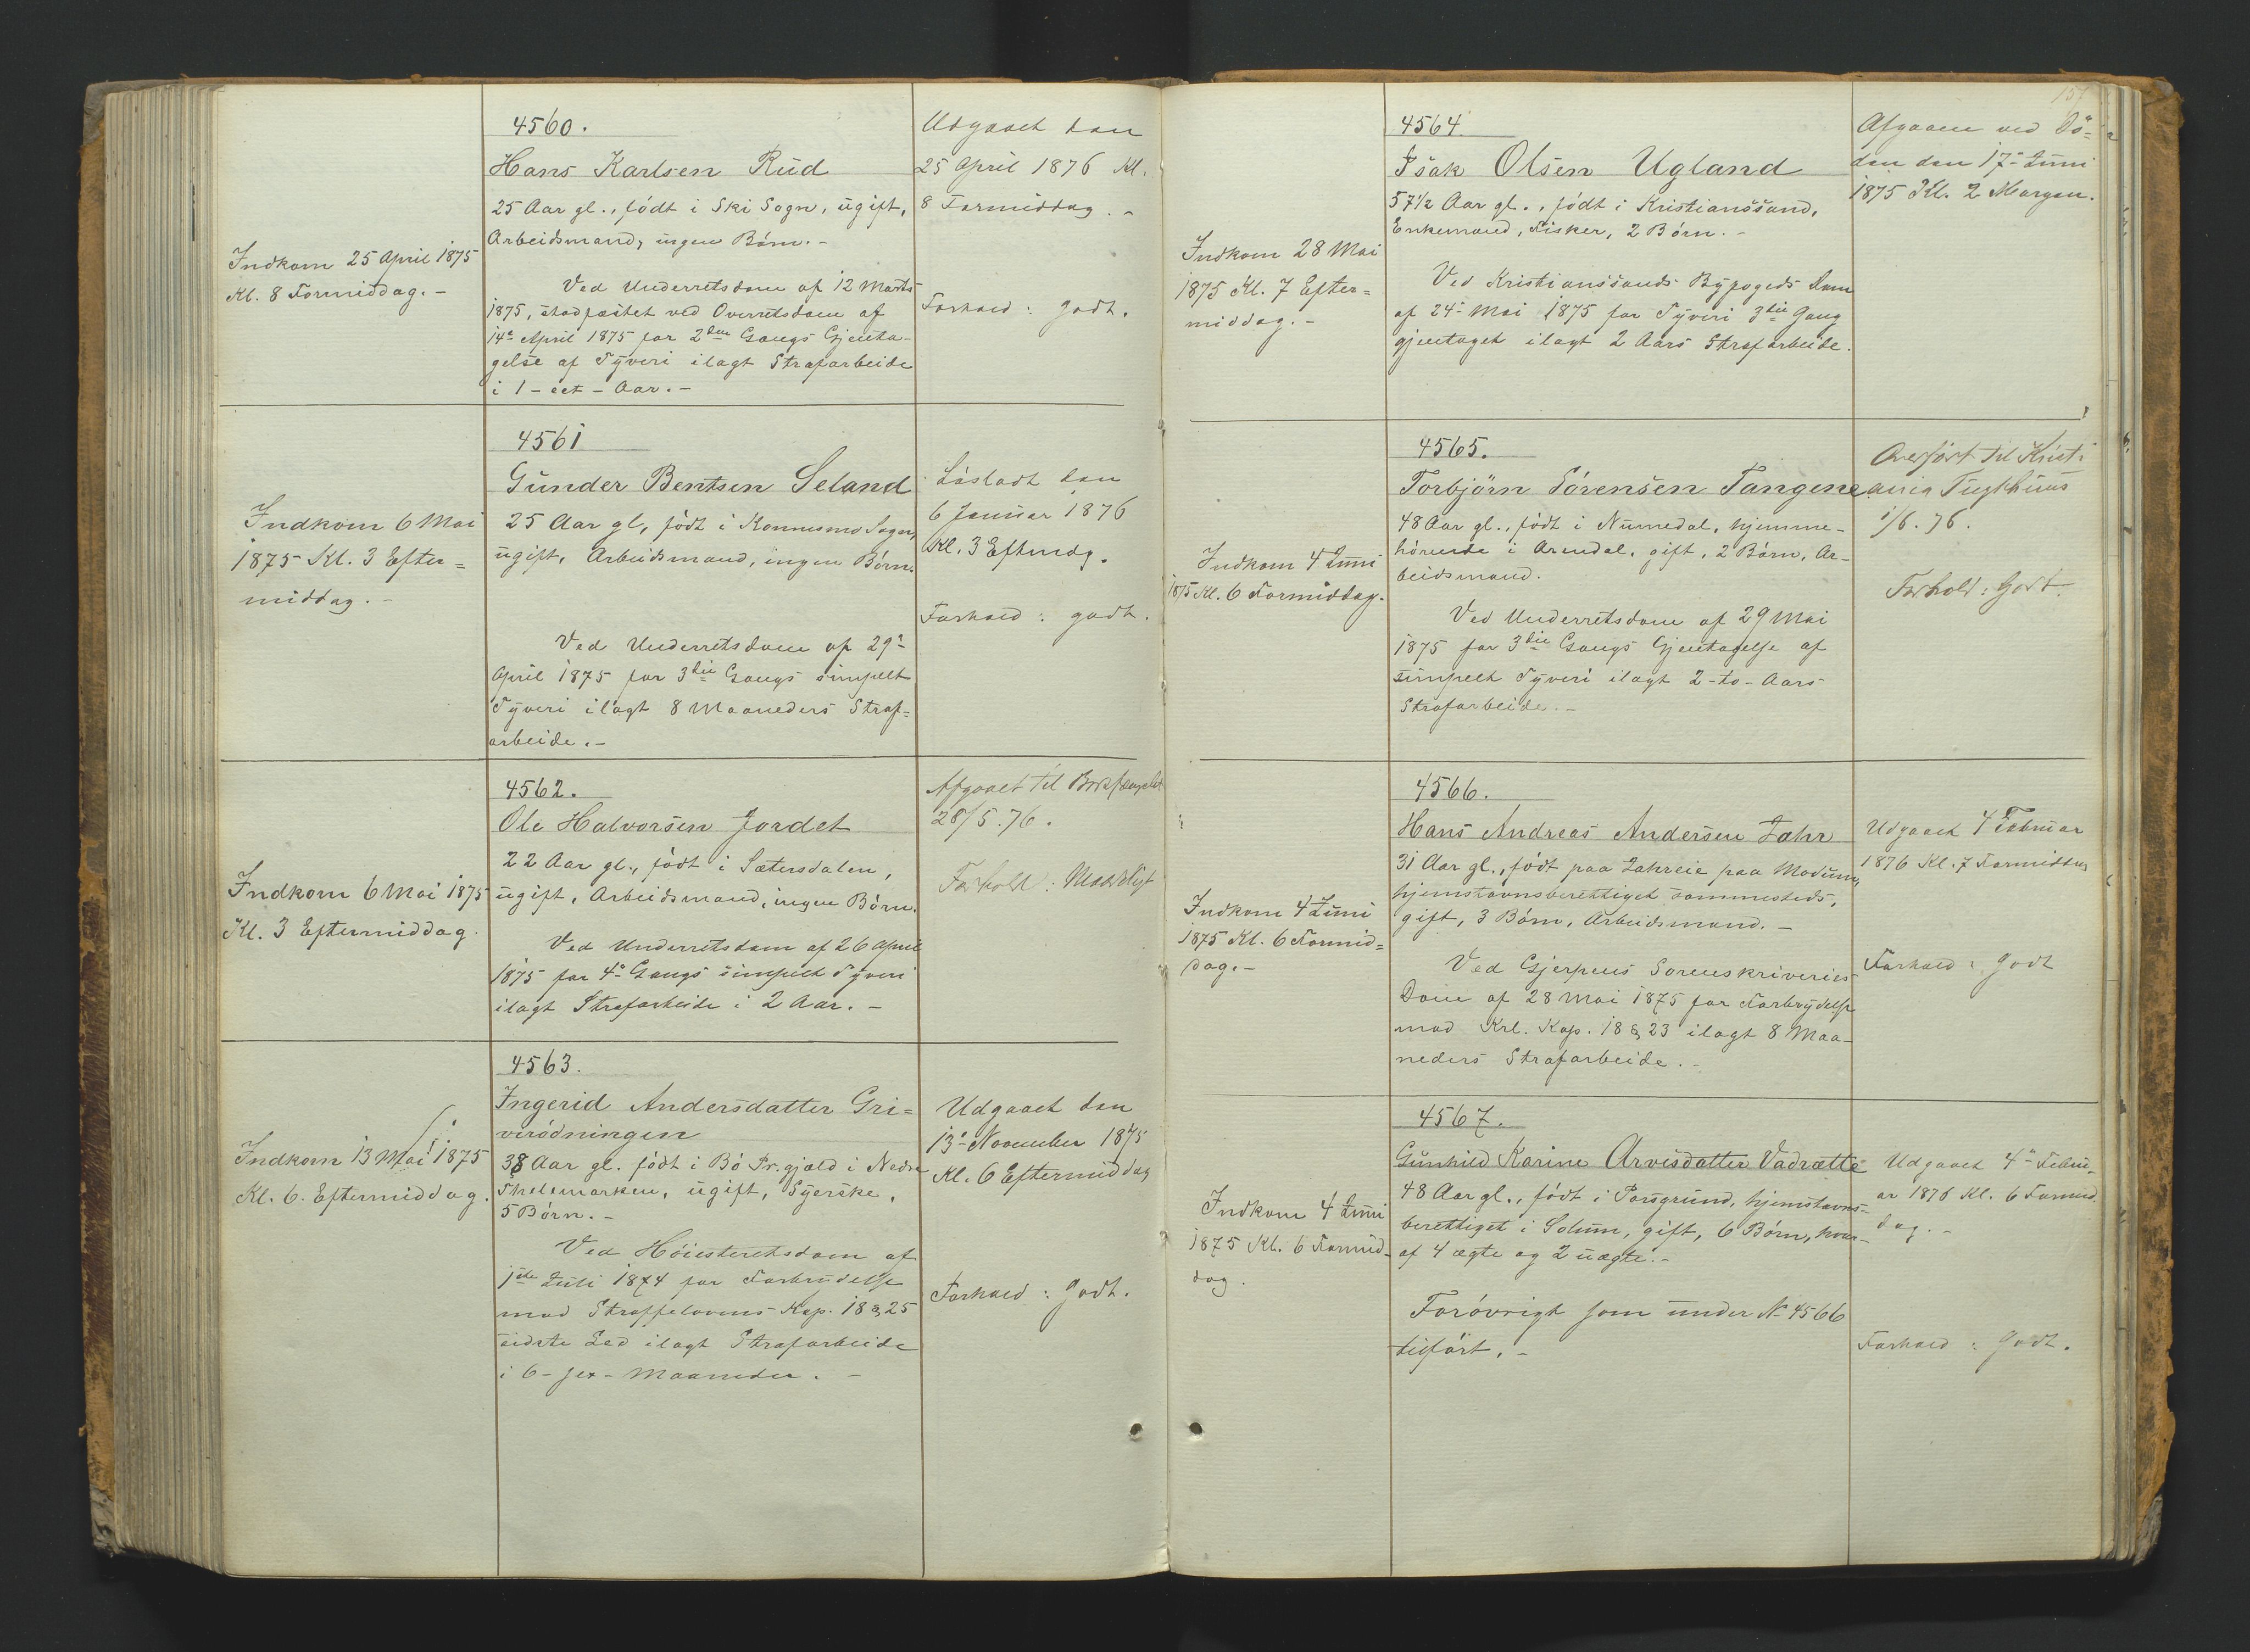 4560.
Hans Karlsen Rud
25 Aar gl., født i Ski Sogn, ugift,
Arbeidsmand, ingen Børn.-
Indkom 25 April 1875
Kl. 8 Formiddag.-
Ved Underretsdom af 12 Marts
1875, stadfæstet ved Overretsdom af
14de April 1875 for 2den Gangs Gjenta-
gelse af Tyveri ilagt Strafarbeide
i 1-eet-Aar.-
Udgaaet den
25 April 1876 Kl.
8 Formiddag.-
Forhold: godt.
4561
Gunder Bentsen Seland
25 Aar gl, født i Konnesmo Sogn,
ugift, Arbeidsmand, ingen Børn.
Indkom 6 Mai
1875 Kl. 3 Efter=
middag.-
Ved Underretsdom af 29-
April 1875 for 3die Gangs simpelt
Tyveri ilagt 8 Maaneders Straf=
arbeide.-
Løsladt den
6 Januar 1876
Kl. 3 Eftmdg.
Forhold: godt.
4562.
Ole Halvorsen Jordet
22 Aar gl., født i Sætersdalen,
ugift, Arbeidsmand, ingen Børn.
Indkom 6 Mai 1875
Kl. 3 Eftermiddag.
Ved Underretsdom af 26 April
1875 for 4- Gangs simpelt Tyveri
ilagt Strafarbeide i 2 Aar.-
Afgaaet til Bodsfængslet
28/5.76.
Forhold: Maadeligt
4563.
Ingerid Andersdatter Gri=
verødningen
38 Aar gl. født i Bø Pr.gjæld i Nedre
Thelemarken, ugift, Syerske,
5 Børn.-
Indkom 13 Mai 1875
Kl. 6. Eftermiddag.
Ved Høiesteretsdom af
1ste Juli 1874 for Forbrydelse
mod Straffelovens Kap. 18 § 25
sidste Led ilagt Strafarbeide
i 6-sex-Maaneder.-
Udgaaet den
13- November 1875
Kl. 6 Eftermiddag
Forhold: Godt.
157
4564
Isak Olsen Ugland
57½ Aar gl., født i Kristianssand,
Enkemand, Fisker, 2 Børn.-
Indkom 28 Mai
1875 Kl. 7 Efter=
middag.-
Ved Kristianssands Byfogeds Dom
af 24- Mai 1875 for Tyveri 3die Gang
gjentaget ilagt 2 Aars Strafarbeide.
Afgaaen ved Dø=
den den 17- Juni
1875 Kl. 2 Morgen.
4565.
Torbjörn Sörensen Tangene
48 Aar gl., født i Numedal, hjemme-
hørende i Arendal, gift, 2 Børn, Ar-
beidsmand.
Indkom 4 Juni
1875 Kl. 6 Formiddag.
Ved Underretsdom af 29 Mai
1875 for 3die Gangs Gjentagelse af
simpelt Tyveri ilagt 2-to-Aars
Strafarbeide.-
Overført til Kristi
ania Tugthuus
1/6.76.
Forhold: Godt.
4566.
Hans Andreas Andersen Zahr
31 Aar gl., født paa Zahreie paa Modum,
hjemstavnsberettiget sammesteds,
gift, 3 Børn, Arbeidsmand.-
Indkom 4 Juni
1875 Kl. 6 Formid=
dag.-
Ved Gjerpens Sorenskriveries
Dom af 28 Mai 1875 for Forbrydelse
mod Krl. Kap. 18 § 23 ilagt 8 Maa-
neders Strafarbeide.-
Udgaaet 4 Februar
1876 Kl. 7 Formiddag
Forhold: Godt
4567.
Gunhild Karine Arvesdatter Vadrætte
48 Aar gl., født i Porsgrund, hjemstavns-
berettiget i Solum, gift, 6 Børn, hvor-
af 4 ægte og 2 uægte.-
Indkom 4 Juni
1875 Kl. 6 Formid-
dag.
Forøvrigt som under No 4566
tilført.-
Udgaaet 4- Febru-
ar 1876 Kl. 6 Formid
dag.-
Forhold: Godt.